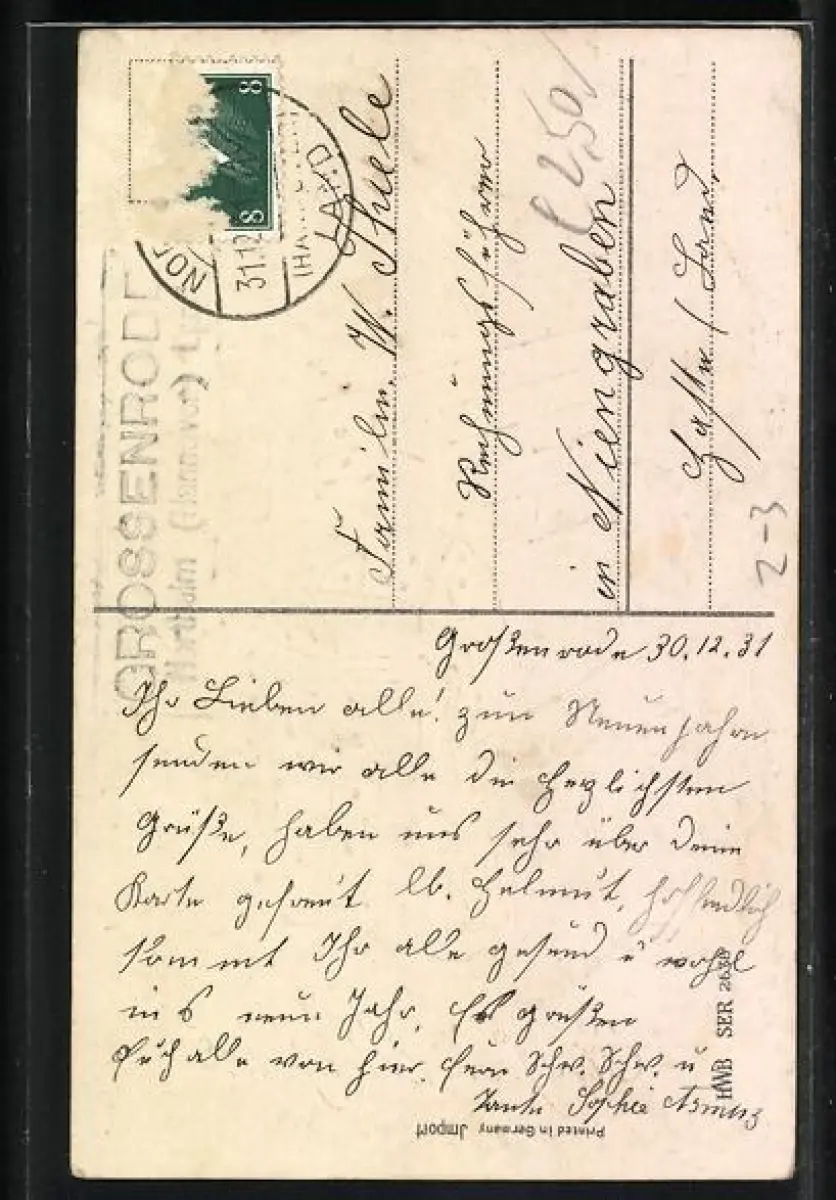 8
8
NOR
31.12
(HANNOVER)
LAND
GROSSENRODE
Northeim (Hannover)
Familie W. Thiele
Rechnungsführer
in Niengraben
Haste / Land.
2,50
2-3
Großenrode 30.12.31
Ihr Lieben alle! zum Neuenjahre
senden wir alle die herzlichsten
Grüße, haben uns sehr über Deine
Karte gefreut lb. Helmut, hoffendlich
kommt Ihr alle gesund u wohl
ins neue Jahr. Es grüßen
Euch alle von hier. Eure Schw. Schw. u
Tante Sophie Asmus
HWB SER
Printed in Germany Jmport